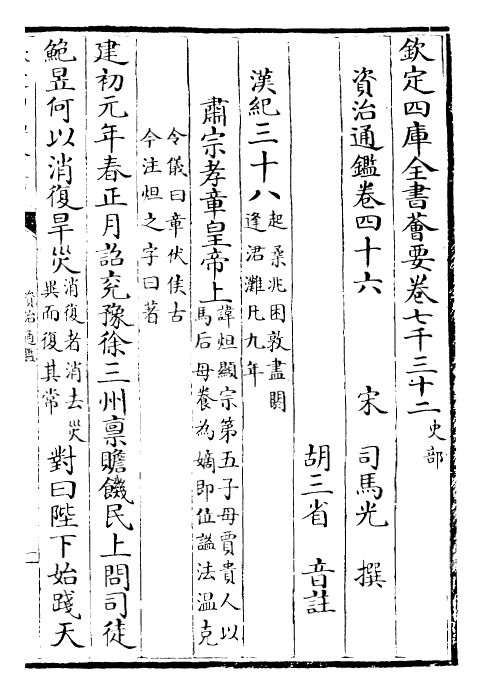 欽定四庫全書薈要卷七千三十二 史部
資治通鑑卷四十六 宋 司馬光 撰
胡三省 音註
漢紀三十八 起柔兆困敦盡閼
逢君灘凡九年
肅宗孝章皇帝上 諱炟顯宗第五子母賈貴人以
馬后母養為嫡即位謚法温克
令儀曰章伏侯古
今注炟之字曰著
建初元年春正月詔兖豫徐三州禀贍饑民上問司徒
鮑昱何以消復旱災 消復者消去災
異而復其常 對曰陛下始踐天
資治通鑑